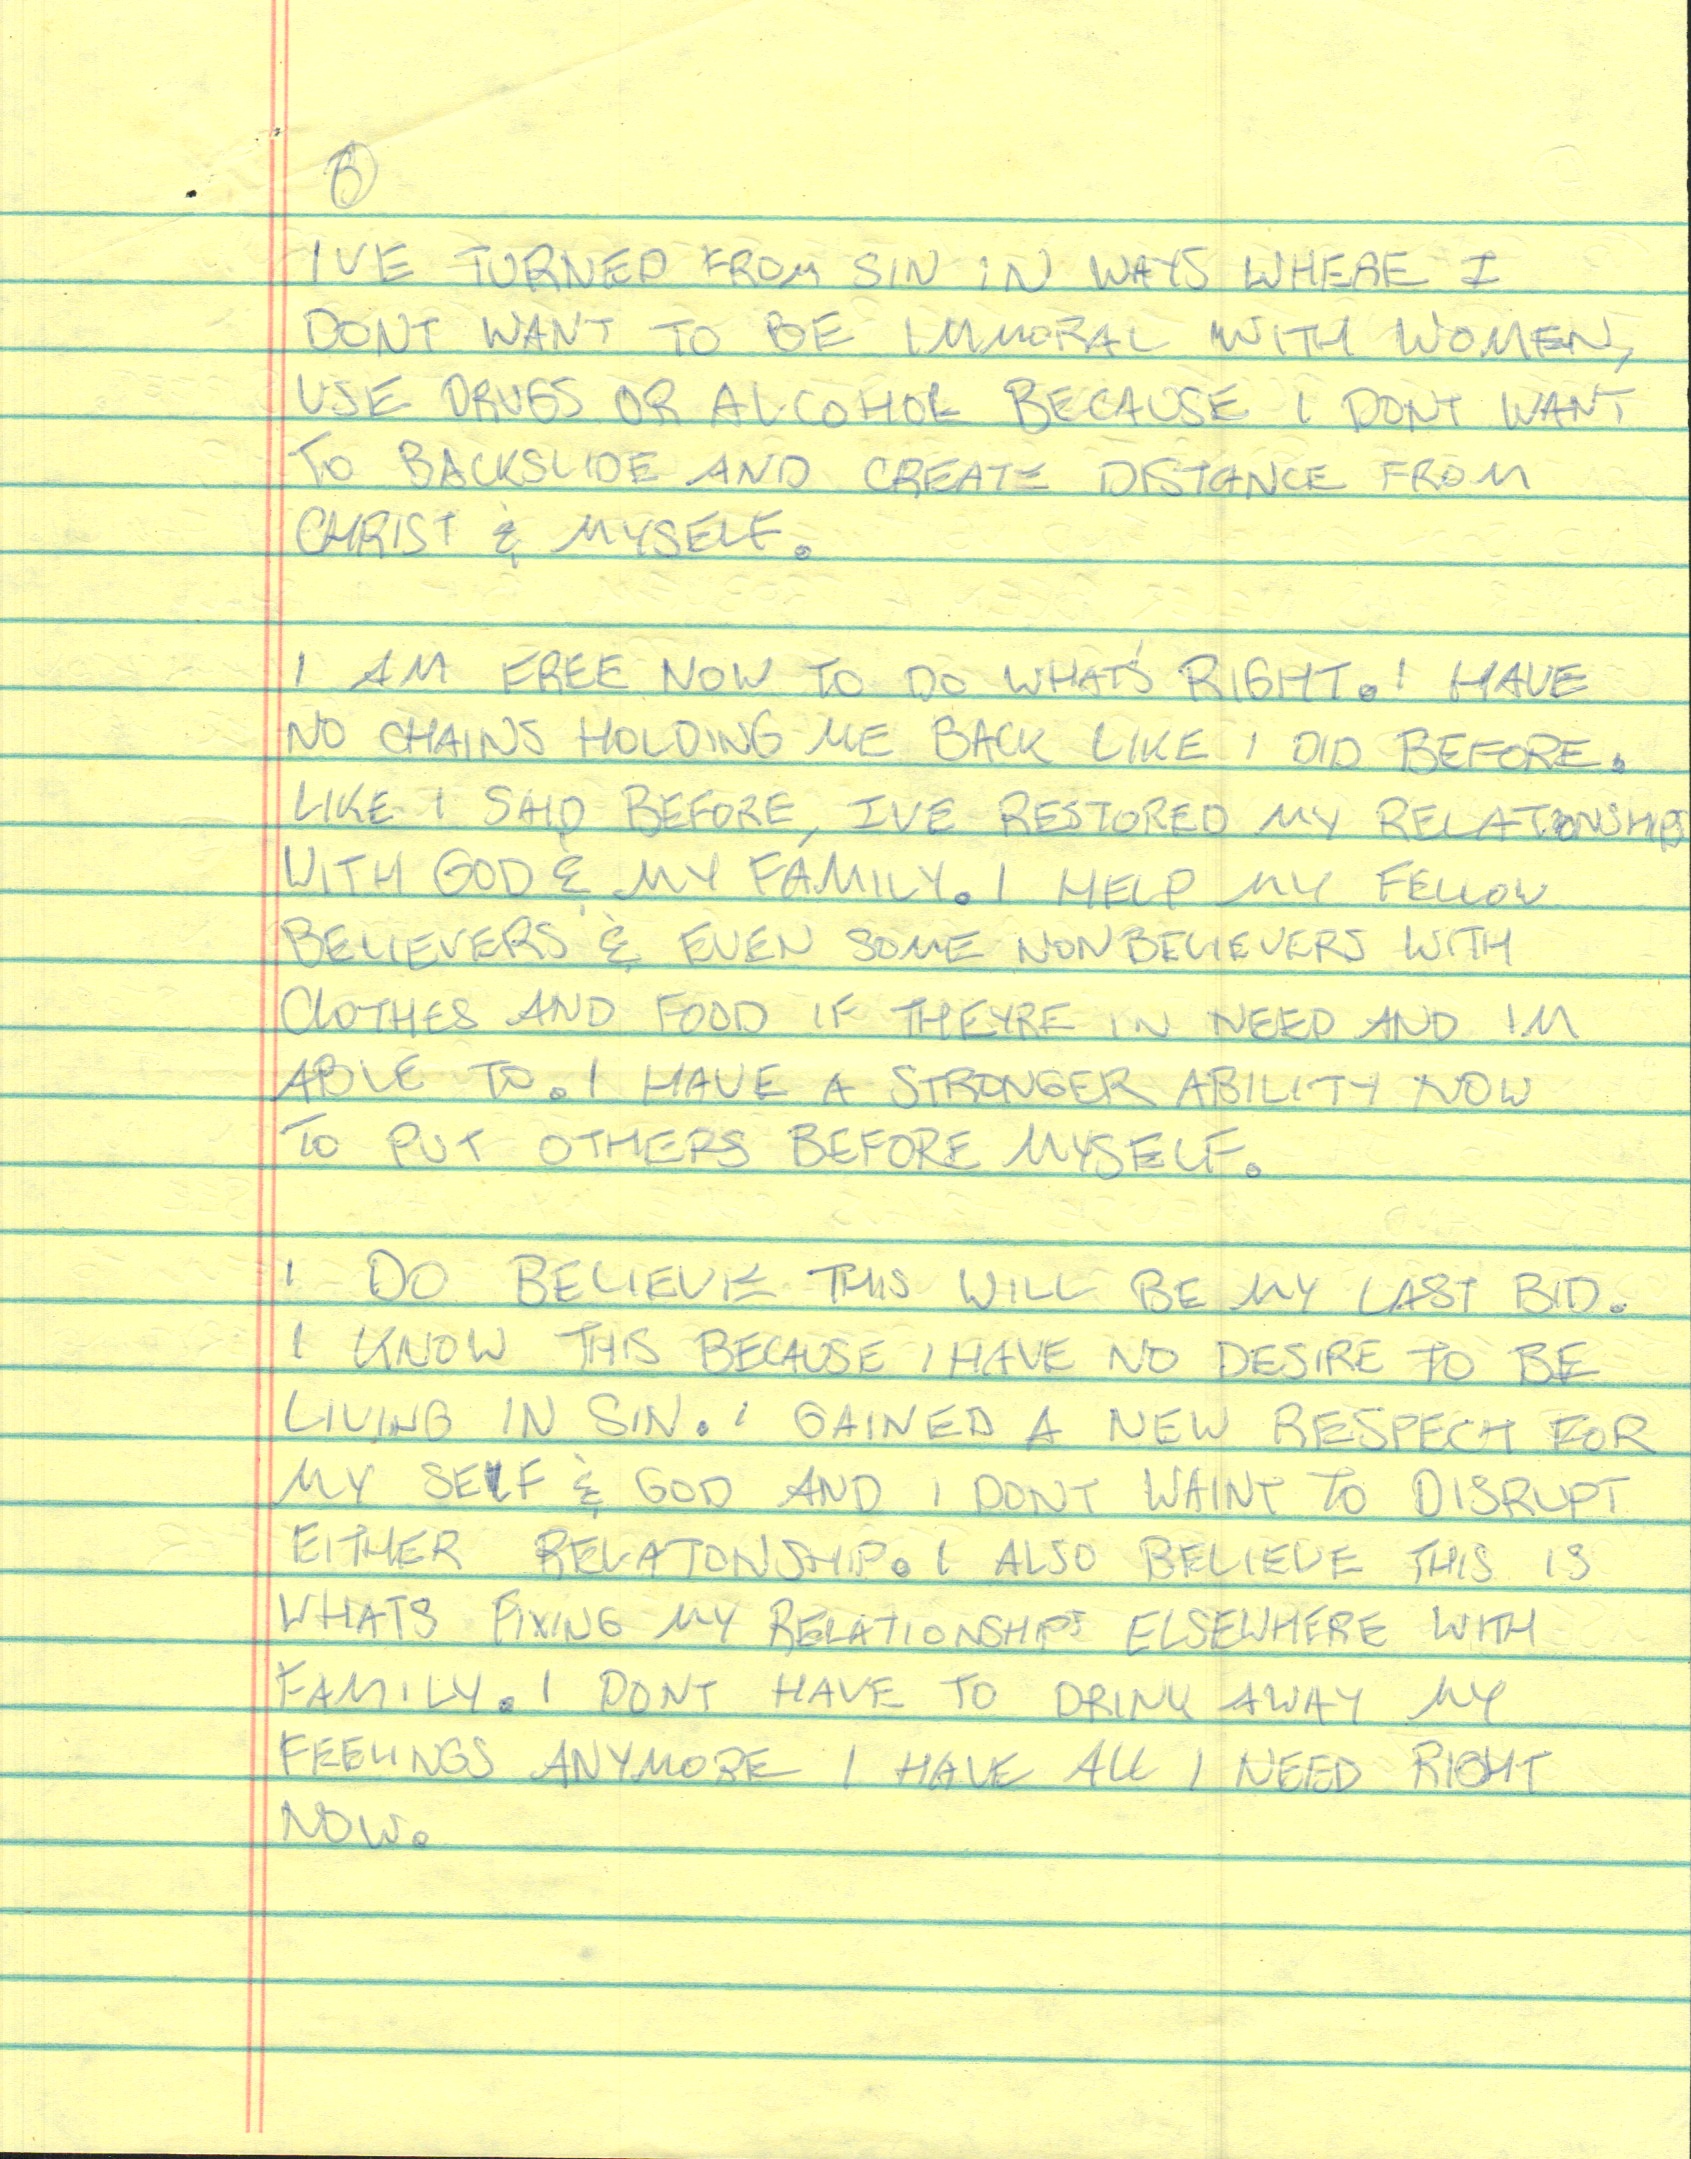 I'VE TURNED FROM SIN IN WAYS WHERE I
DONT WANT TO BE IMMORAL WITH WOMEN,
USE DRUGS OR ALCOHOL BECAUSE I DONT WANT
TO BACKSLIDE AND CREATE DISTANCE FROM
CHRIST & MYSELF.
I AM FREE NOW TO DO WHAT'S RIGHT. I HAVE
NO CHAINS HOLDING ME BACK LIKE I DID BEFORE.
LIKE I SAID BEFORE, IVE RESTORED MY RELATIONSHIP
WITH GOD & MY FAMILY. I HELP MY FELLOW
BELIEVERS & EVEN SOME NONBELIEVERS WITH
CLOTHES AND FOOD IF THEYRE IN NEED AND IM
ABLE TO. I HAVE A STRONGER ABILITY NOW
TO PUT OTHERS BEFORE MYSELF.
I DO BELIEVE THIS WILL BE MY LAST BID.
I KNOW THIS BECAUSE I HAVE NO DESIRE TO BE
LIVING IN SIN. I GAINED A NEW RESPECT FOR
MY SELF & GOD AND I DONT WAINT TO DISRUPT
EITHER RELATONSHIP. I ALSO BELIEVE THIS IS
WHATS FIXING MY RELATIONSHIPS ELSEWHERE WITH
FAMILY. I DONT HAVE TO DRINK AWAY MY
FEELINGS ANYMORE I HAVE ALL I NEED RIGHT
NOW.